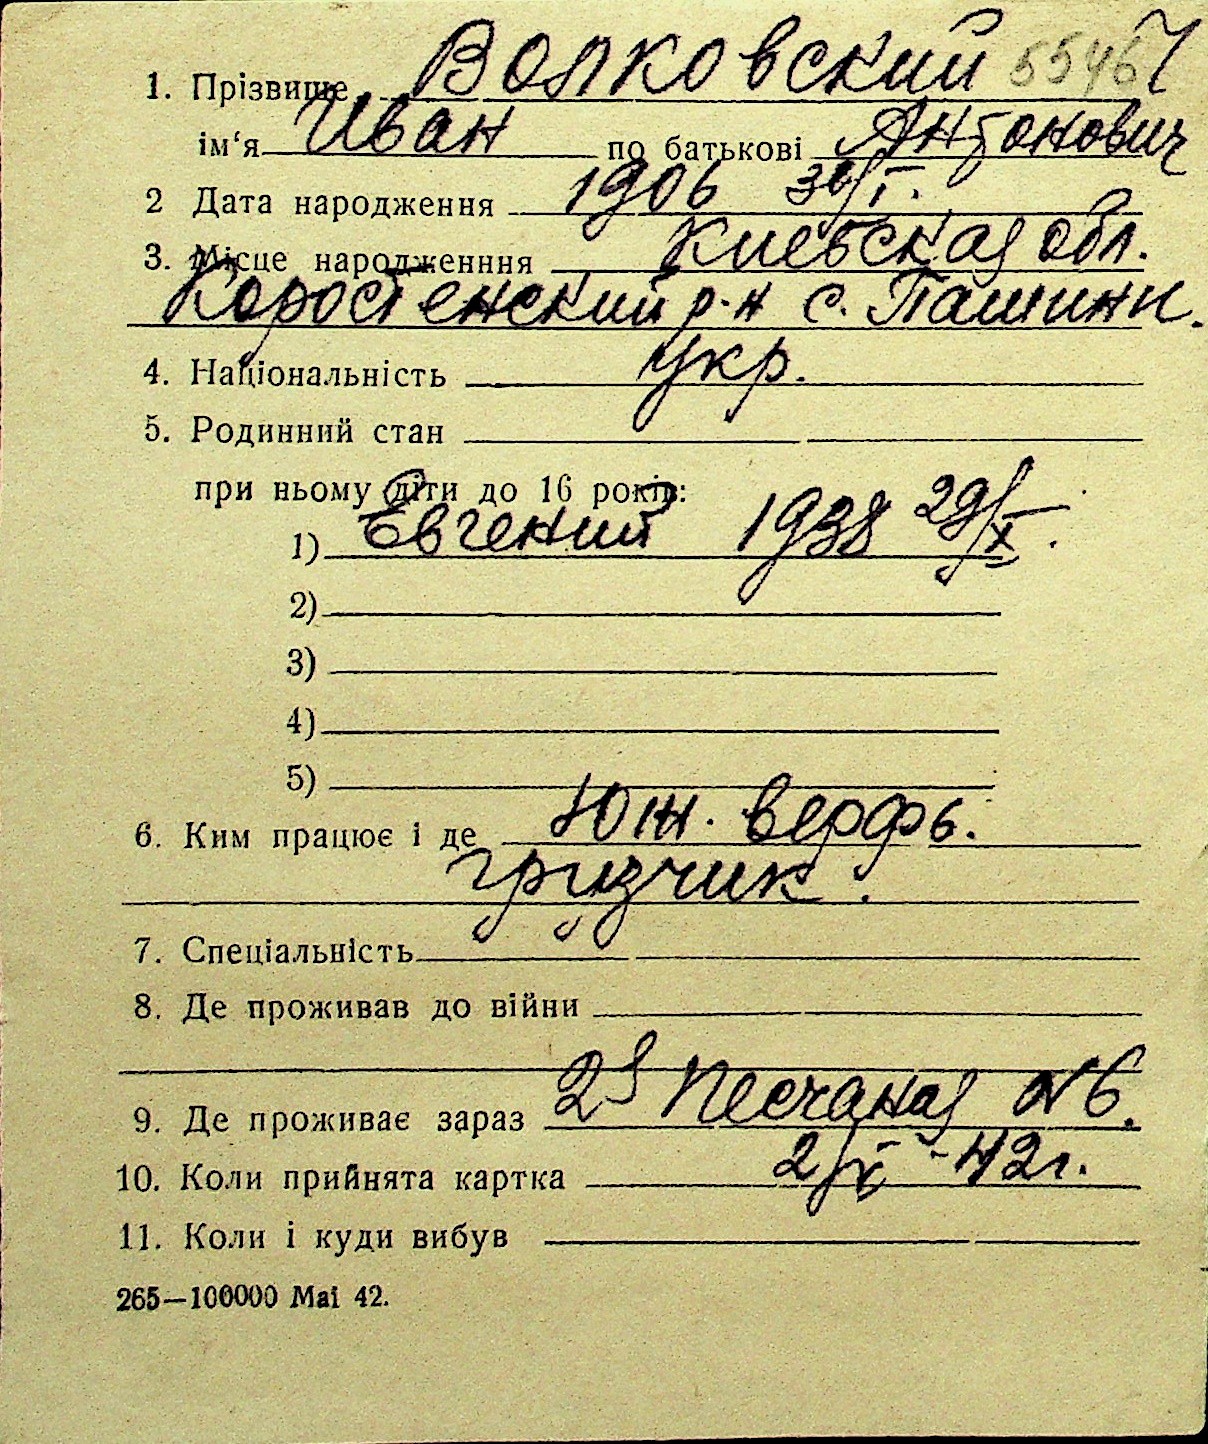 1. Прізвище Волковский 5546
ім‘я Иван по батькові Антонович
2 Дата народження 1906 30/I.
3. Місце народженння Киевская обл.
Коростенский р-н с. Пашини.
4. Національність укр.
5. Родинний стан
при ньому діти до 16 років:
1) Евгений 1938 29/X.
2)
3)
4)
5)
6. Ким працює і де Юж. верфь.
грузчик.
7. Спеціальність
8. Де проживав до війни
9. Де проживає зараз 2я Песчаная №6.
10. Коли прийнята картка 2/X-42г.
11. Коли і куди вибув
265—100000 Mai 42.